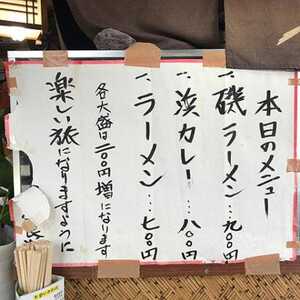 本日のメニュー
一、磯ラーメン…九〇〇円
一、浜カレー…八〇〇円
一、ラーメン…七〇〇円
各大盛は二〇〇円増になります
楽しい旅になりますように